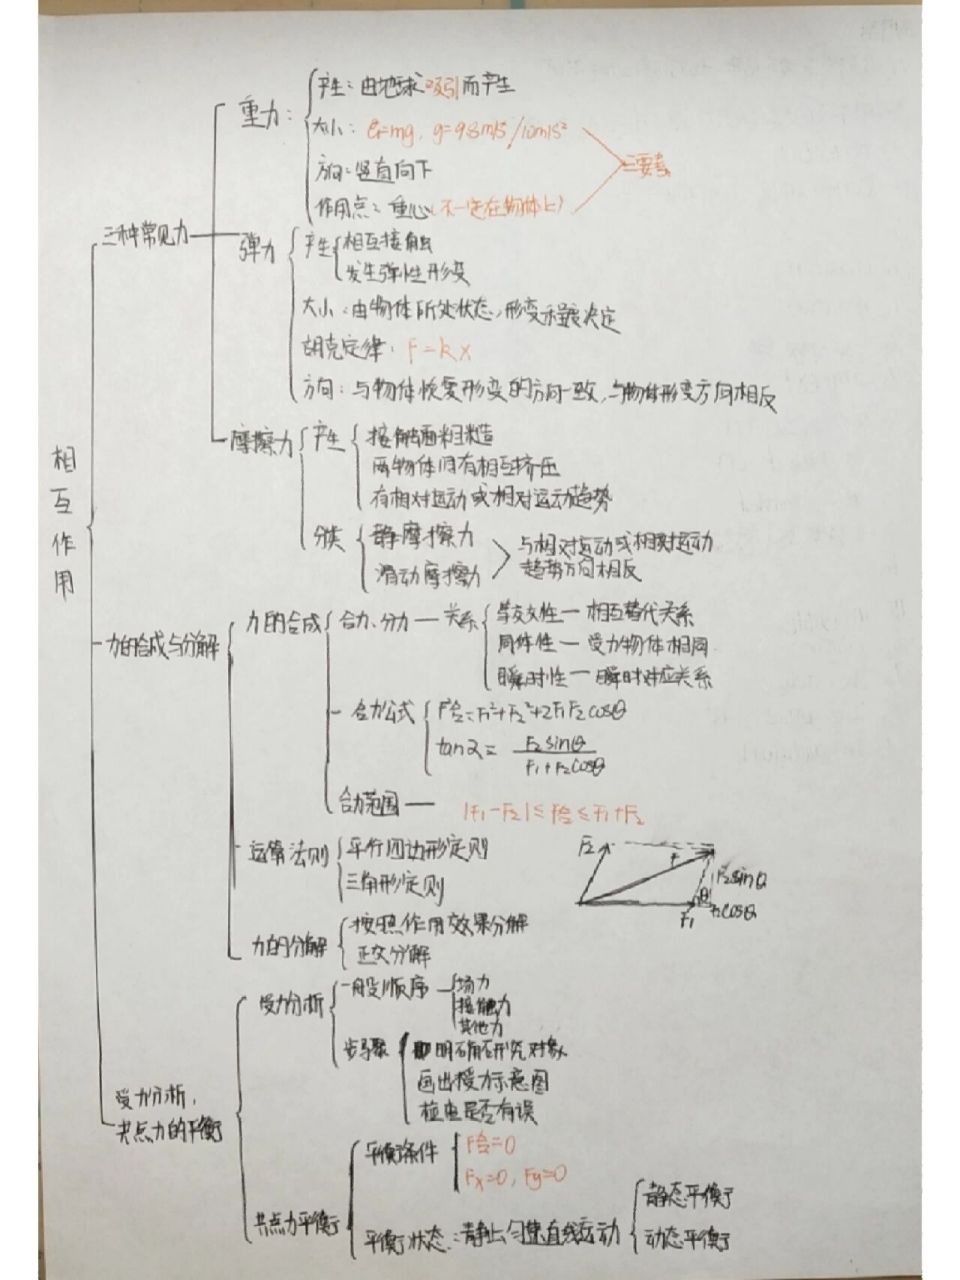 相互作用
三种常见力
重力:
产生:由地球吸引而产生
大小: G=mg, g=9.8m/s²/10m/s²
方向:竖直向下
作用点:重心(不一定在物体上)
三要素
弹力
产生
相互接触
发生弹性形变
大小:由物体所处状态,形变程度决定
胡克定律: F=kx
方向:与物体恢复形变的方向一致,与物体形变方向相反
摩擦力
产生
接触面粗糙
两物体间有相互挤压
有相对运动或相对运动趋势
分类
静摩擦力
滑动摩擦力
与相对运动或相对运动
趋势方向相反
力的合成与分解
力的合成
合力、分力—关系
等效性—相互替代关系
同体性—受力物体相同
瞬时性—瞬时对应关系
合力公式
F²合=F₁²+F₂²+2F₁F₂cosθ
tanα= F₂sinθ
F₁+F₂cosθ
合力范围—
|F₁-F₂|≤F合≤F₁+F₂
运算法则
平行四边形定则
三角形定则
F₂
F
F₂sinθ
θ
F₁
F₂cosθ
力的分解
按照作用效果分解
正交分解
受力分析,
共点力的平衡
受力分析
一般顺序
场力
接触力
其他力
步骤
明确研究对象
画出受力示意图
检查是否有误
共点力平衡
平衡条件
F合=0
Fx=0, Fy=0
平衡状态:静止,匀速直线运动
静态平衡
动态平衡